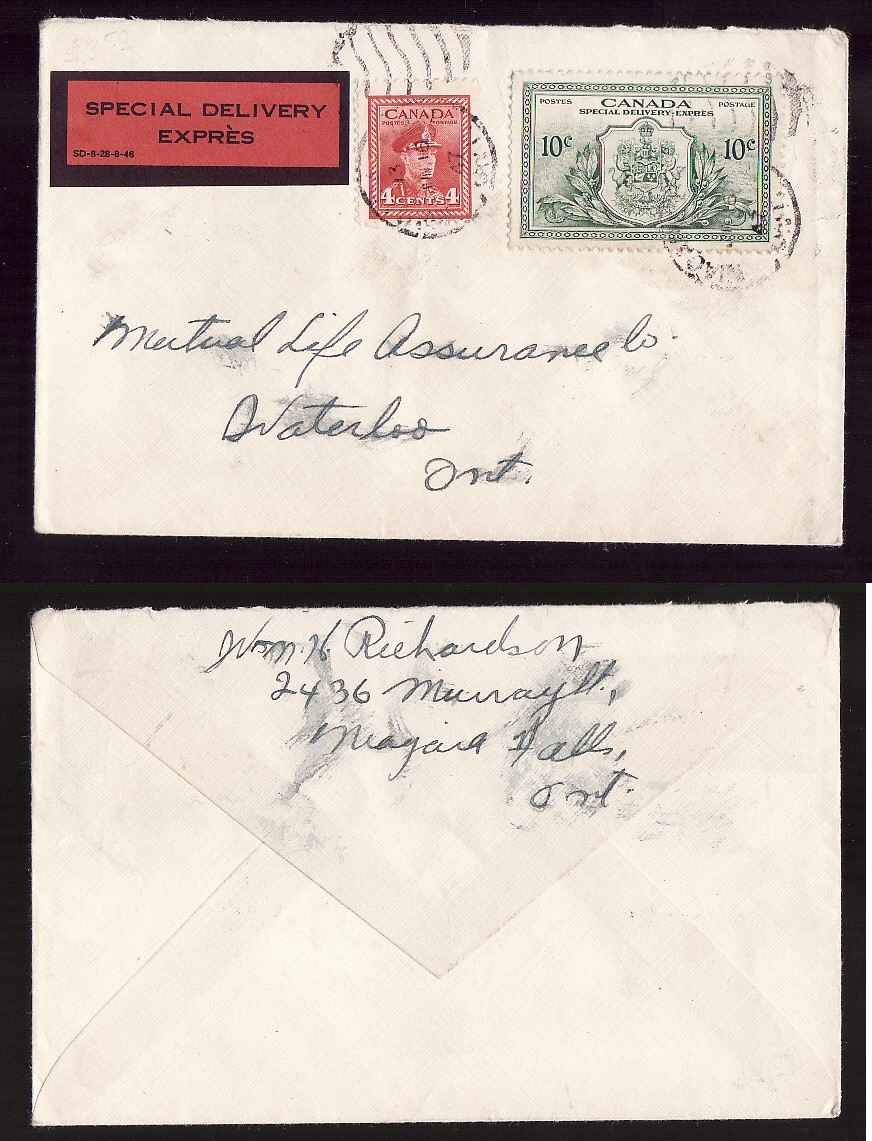 SPECIAL DELIVERY
EXPRÈS
SD-8-28-8-46
CANADA
POSTES POSTAGE
4 CENTS 4
POSTES CANADA POSTAGE
SPECIAL DELIVERY-EXPRÈS
10c 10c
Mutual Life Assurance Co.
Waterloo
Ont.
Wm. H. Richardson
2436 Murray St.,
Niagara Falls,
Ont.